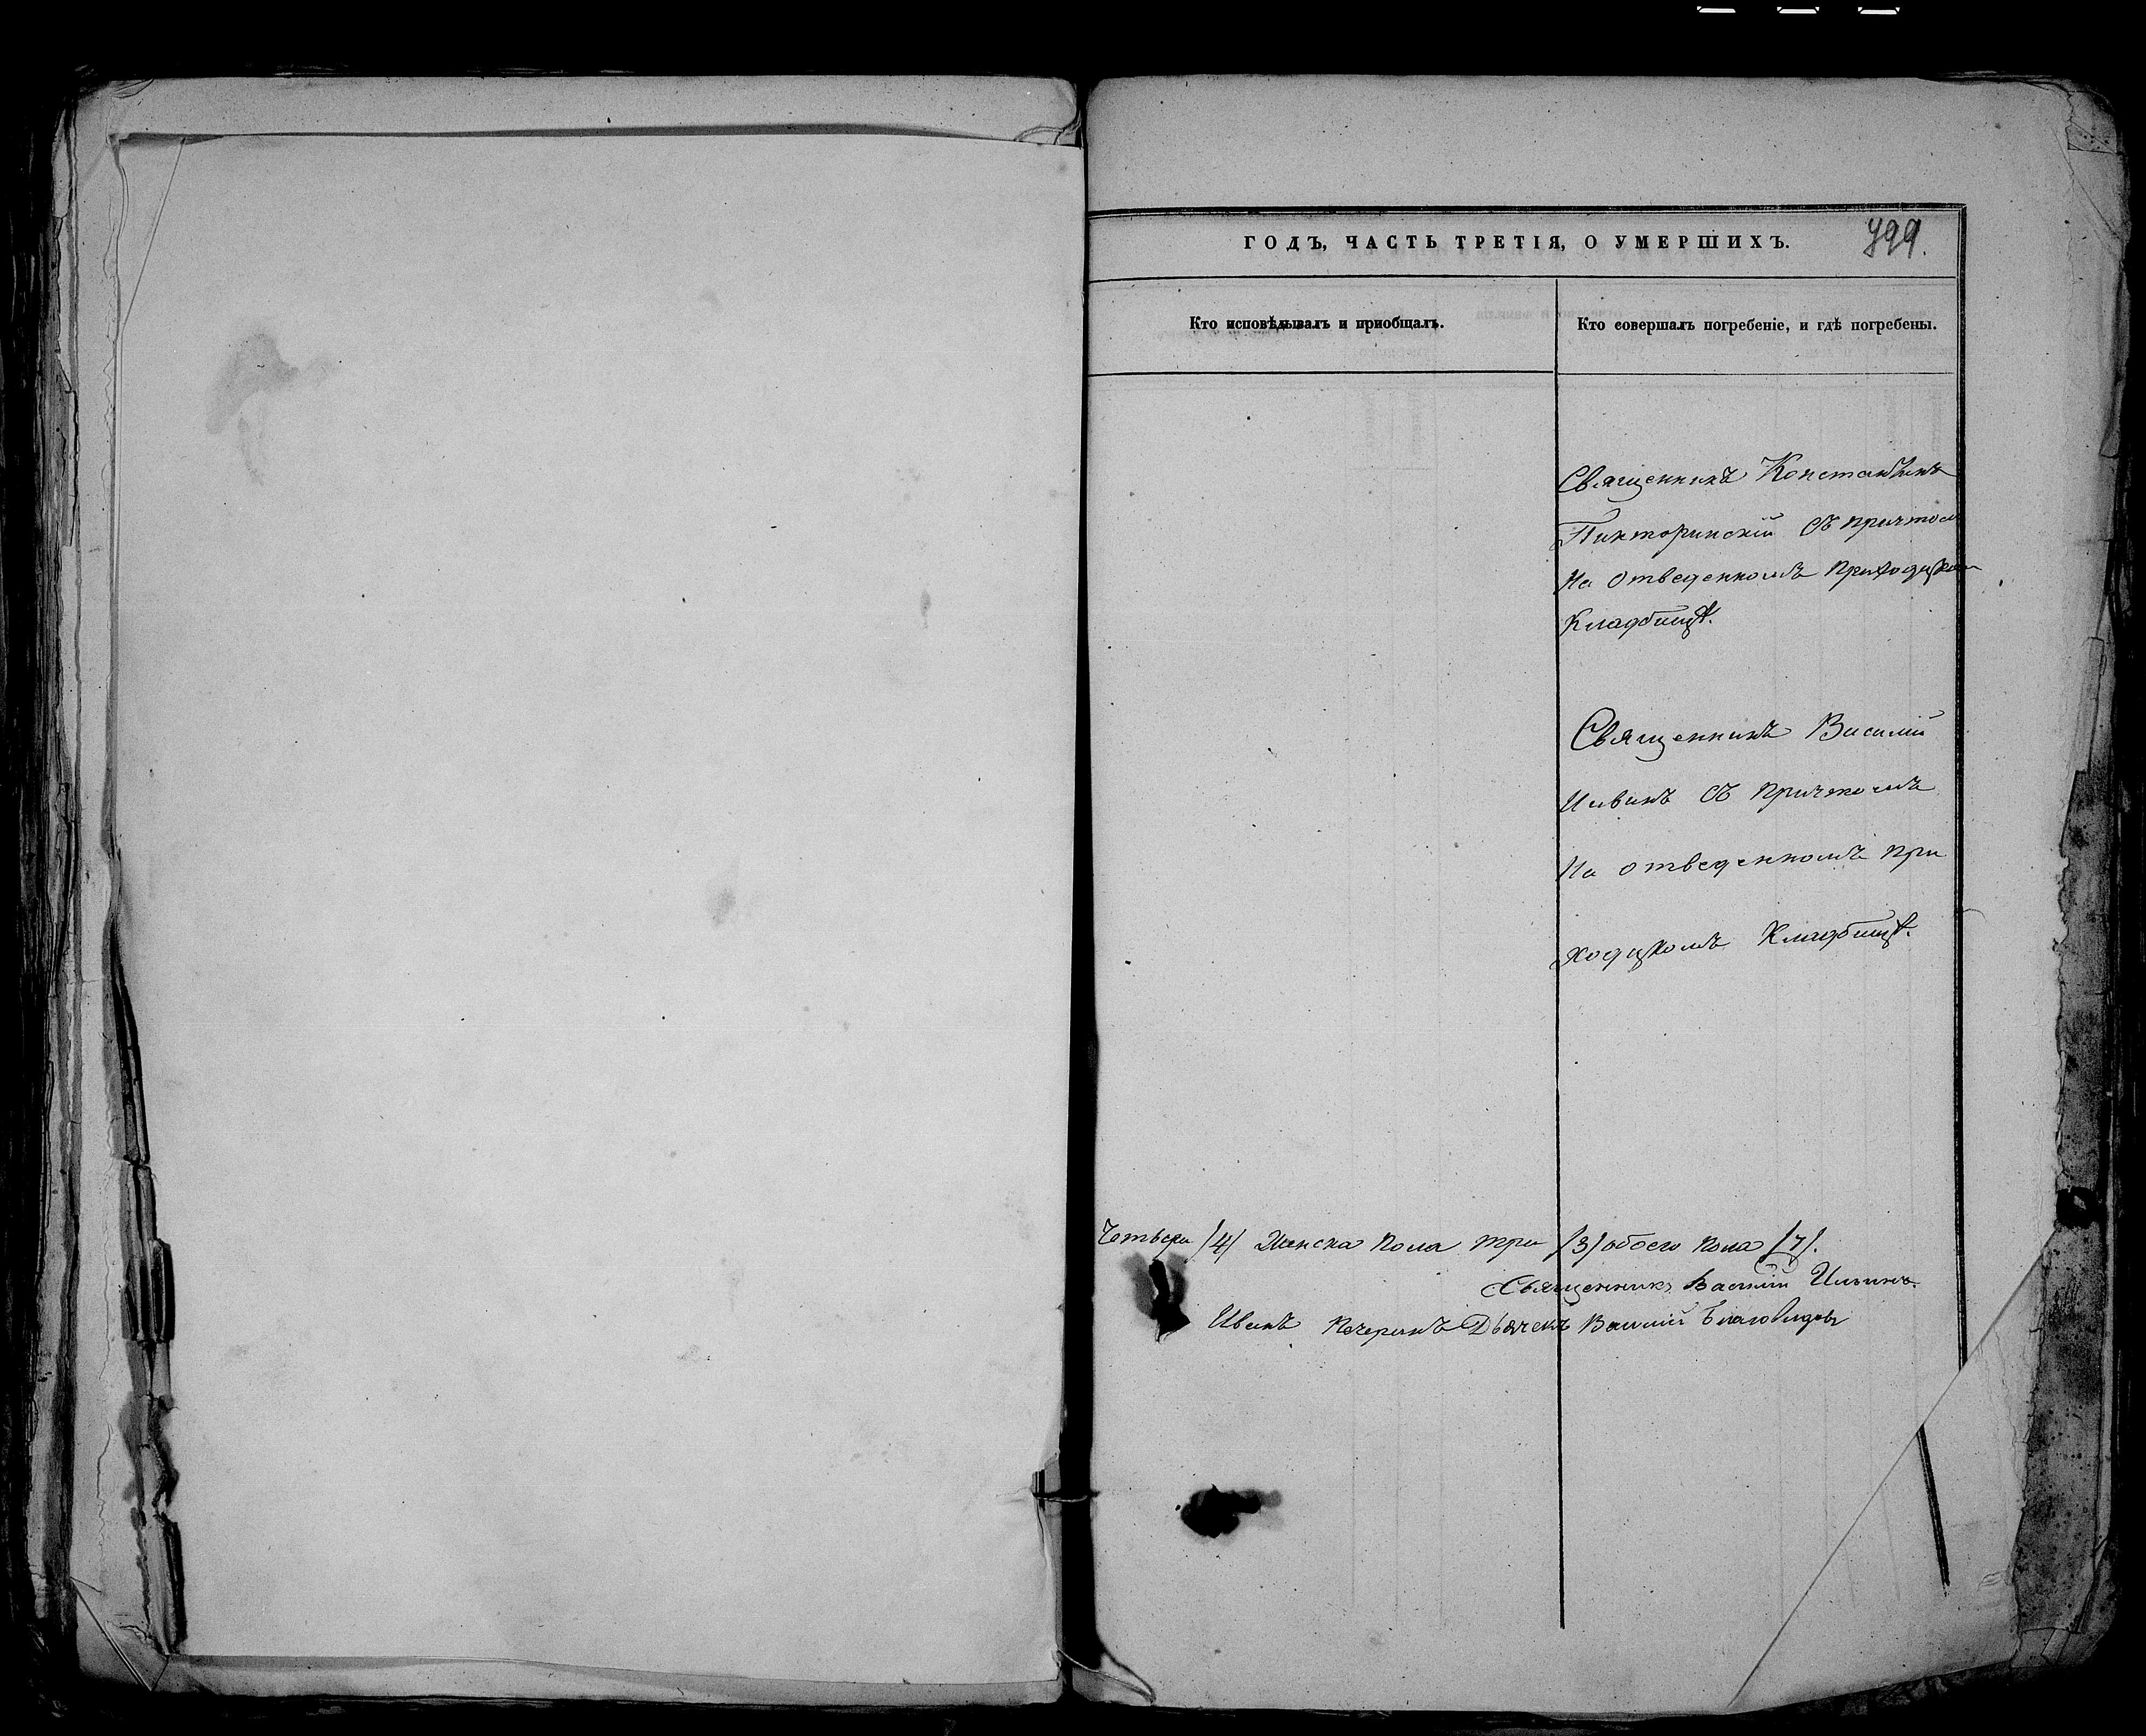 ГОДЪ, ЧАСТЬ ТРЕТІЯ, О УМЕРШИХЪ.
799.
Кто исповѣдывалъ и приобщалъ.
Кто совершалъ погребеніе, и гдѣ погребены.
Священникъ Константинъ
Пикторинскій съ причтом
На отведенномъ приходском
Кладбищѣ.
Священникъ Василій
Ильинъ съ причтомъ
На отведенномъ при
ходскомъ Кладбищѣ.
Четверы /4/ Женска пола три /3/ обоего пола /7/.
Священникъ Василій Ильинъ.
Иванъ Печеринъ Дьячекъ Василій Благовидовъ